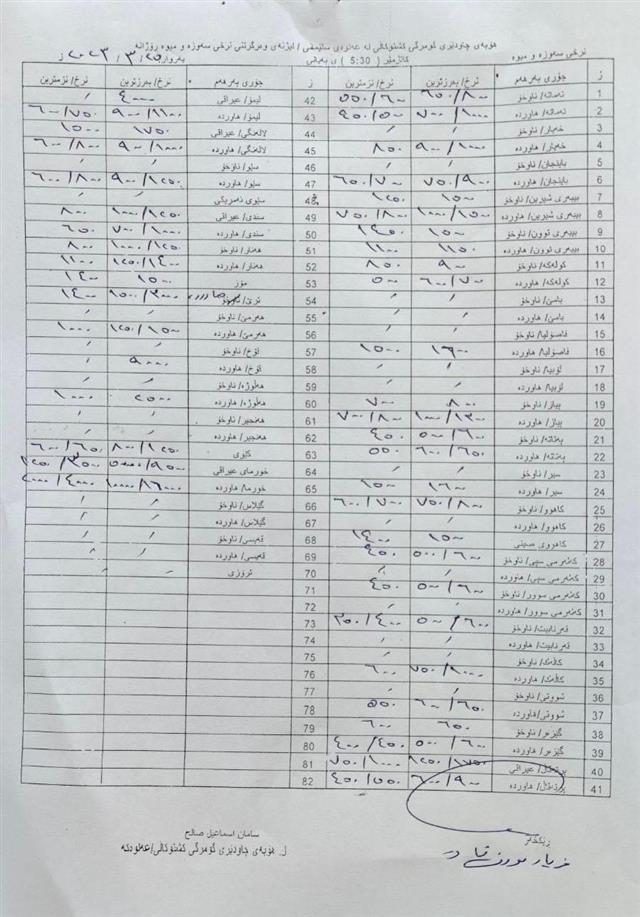 هۆبەی چاودێری گومرگی کشتوکاڵی لە عەلوەی سلێمانی / لیژنەی وەرگرتنی نرخی سەوزە و میوە ڕۆژانە
نرخی سەوزە و میوە کاتژمێر ( 5:30 ) ی بەیانی بەروار ٢٠٢٣/٣/٢٥
ژ جۆری بەرهەم نرخ/ بەرزترین نرخ/ نزمترین ژ جۆری بەرهەم نرخ/ بەرزترین نرخ/ نزمترین
1 تەماتە/ ناوخۆ ٦٥٠/٨٠٠ ٥٥٠/٦٠٠ 42 لیمۆ/ عیراقی ٤٠٠٠ /
2 تەماتە/ هاوردە ٧٠٠/١٠٠٠ ٤٥٠/٥٠٠ 43 لیمۆ/ هاوردە ٩٠٠/١١٠٠ ٦٠٠/٧٥٠
3 خەیار/ ناوخۆ / / 44 لالەنگی/ عیراقی ١٧٥٠ ١٥٠٠
4 خەیار/ هاوردە ٩٠٠/١٠٠٠ ٨٥٠ 45 لالەنگی/ هاوردە ٩٠٠/١٠٠٠ ٦٠٠/٨٠٠
5 باینجان/ ناوخۆ / / 46 سێو/ ناوخۆ / /
6 باینجان/ هاوردە ٧٥٠/٩٠٠ ٦٥٠/٧٠٠ 47 سێو/ هاوردە ٩٠٠/١٢٥٠ ٦٠٠/٨٠٠
7 بیبەری شیرین/ ناوخۆ ١٥٠٠ ١٢٥٠ 48 سێوی ئەمریکی / /
8 بیبەری شیرین/ هاوردە ١٠٠٠/١٥٠٠ ٧٥٠/٨٠٠ 49 سندی/ عیراقی ١٠٠٠/١٢٥٠ ٨٠٠
9 بیبەری توون/ ناوخۆ ١٥٠٠ ١٢٥٠ 50 سندی/ هاوردە ٧٠٠/١٠٠٠ ٦٥٠
10 بیبەری توون/ هاوردە ١١٥٠ ١١٠٠ 51 هەنار/ ناوخۆ ١٠٠٠/١٢٥٠ ٨٠٠
11 کولەکە/ ناوخۆ ٩٠٠ ٨٥٠ 52 هەنار/ هاوردە ١٢٥٠/١٤٠٠ ١١٠٠
12 کولەکە/ هاوردە ٦٠٠/٧٠٠ ٥٠٠ 53 مۆز ١٥٠٠ ١٤٠٠
13 بامێ/ ناوخۆ / / 54 ترێ/ ١٥٠٠/٣٠٠٠ ١٤٠٠
14 بامێ/ هاوردە / / 55 هەرمێ/ ناوخۆ / /
15 فاصۆلیا/ ناوخۆ / / 56 هەرمێ/ هاوردە ١٢٥٠/١٥٠٠ ١٠٠٠
16 فاصۆلیا/ هاوردە ١٦٠٠ ١٥٠٠ 57 قۆخ/ ناوخۆ / /
17 لۆبیا/ ناوخۆ / / 58 قۆخ/ هاوردە ٩٠٠٠ /
18 لۆبیا/ هاوردە / / 59 هەڵوژە/ ناوخۆ / /
19 پیاز/ ناوخۆ ٨٠٠ ٧٠٠ 60 هەڵوژە/ هاوردە ٢٥٠٠ ١٠٠٠
20 پیاز/ هاوردە ١٠٠٠/١٣٠٠ ٧٠٠/٨٠٠ 61 هەنجیر/ ناوخۆ / /
21 پەتاتە/ ناوخۆ ٥٠٠/٦٠٠ ٤٥٠ 62 هەنجیر/ هاوردە / /
22 پەتاتە/ هاوردە ٦٠٠/٦٥٠ ٥٥٠ 63 کێوی ٨٠٠/١٢٥٠ ٦٠٠/٦٥٠
23 سیر/ ناوخۆ / / 64 خورمای عیراقی
24 سیر/ هاوردە ١٦٠٠ ١٥٠٠ 65 خورما/ هاوردە ١٠٠٠٠/١٦٠٠٠ ٢٠٠٠/٤٠٠٠
25 کاهوو/ ناوخۆ ٧٥٠/٨٠٠ ٦٠٠/٧٠٠ 66 گێلاس/ ناوخۆ / /
26 کاهوو/ هاوردە / / 67 گێلاس/ هاوردە / /
27 کاهووی صینی ١٥٠٠ ١٤٠٠ 68 قەیسی/ ناوخۆ / /
28 کەلەرمی سپی/ ناوخۆ ٥٠٠/٦٠٠ ٤٥٠ 69 قەیسی/ هاوردە / /
29 کەلەرمی سپی/ هاوردە / / 70 تروزی / /
30 کەلەرمی سوور/ ناوخۆ ٥٠٠/٦٠٠ ٤٥٠ 71
31 کەلەرمی سوور/ هاوردە / / 72
32 قەرنابیت/ ناوخۆ ٥٠٠/٦٠٠ ٣٥٠/٤٠٠ 73
33 قەرنابیت/ هاوردە / / 74
34 کاڵەک/ ناوخۆ / / 75
35 کاڵەک/ هاوردە ٧٥٠/٩٠٠٠ ٦٠٠ 76
36 شووتی/ ناوخۆ / / 77
37 شووتی/ هاوردە ٦٠٠/٦٥٠ ٥٥٠ 78
38 گێزەر/ ناوخۆ ٦٥٠ ٦٠٠ 79
39 گێزەر/ هاوردە ٥٠٠/٦٠٠ ٤٠٠/٤٥٠ 80
40 پرتەقاڵ/ عیراقی ١٢٥٠/١٧٥٠ ٧٥٠/١٠٠٠ 81
41 پرتەقاڵ/ هاوردە ٦٠٠/٩٠٠ ٤٥٠/٥٥٠ 82
ڕێکخەر
سامان اسماعیل صالح
ل. هۆبەی چاودێری گومرگی کشتوکاڵی/عەلوەکە